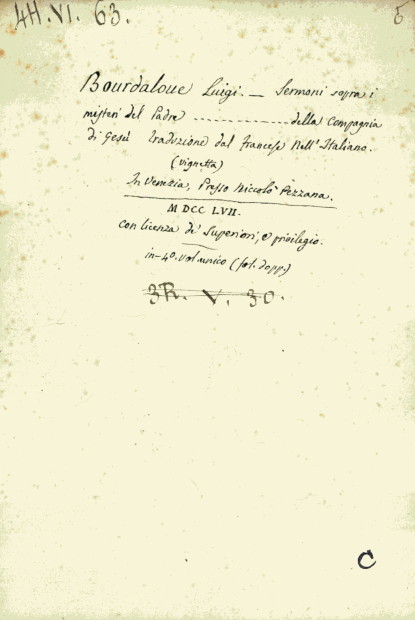 4H. VI. 63.
6
Bourdaloue Luigi. — Sermoni sopra i
misteri del Padre ---------------- della Compagnia
di Gesù traduzione dal francese nell'Italiano.
(vignetta)
In Venezia, Presso Niccolò Pezzana.
MDCC LVII.
con licenza de' Superiori, e privilegio.
in-4o. vol. unico (fol. dopp.)
3R. V. 30.
C